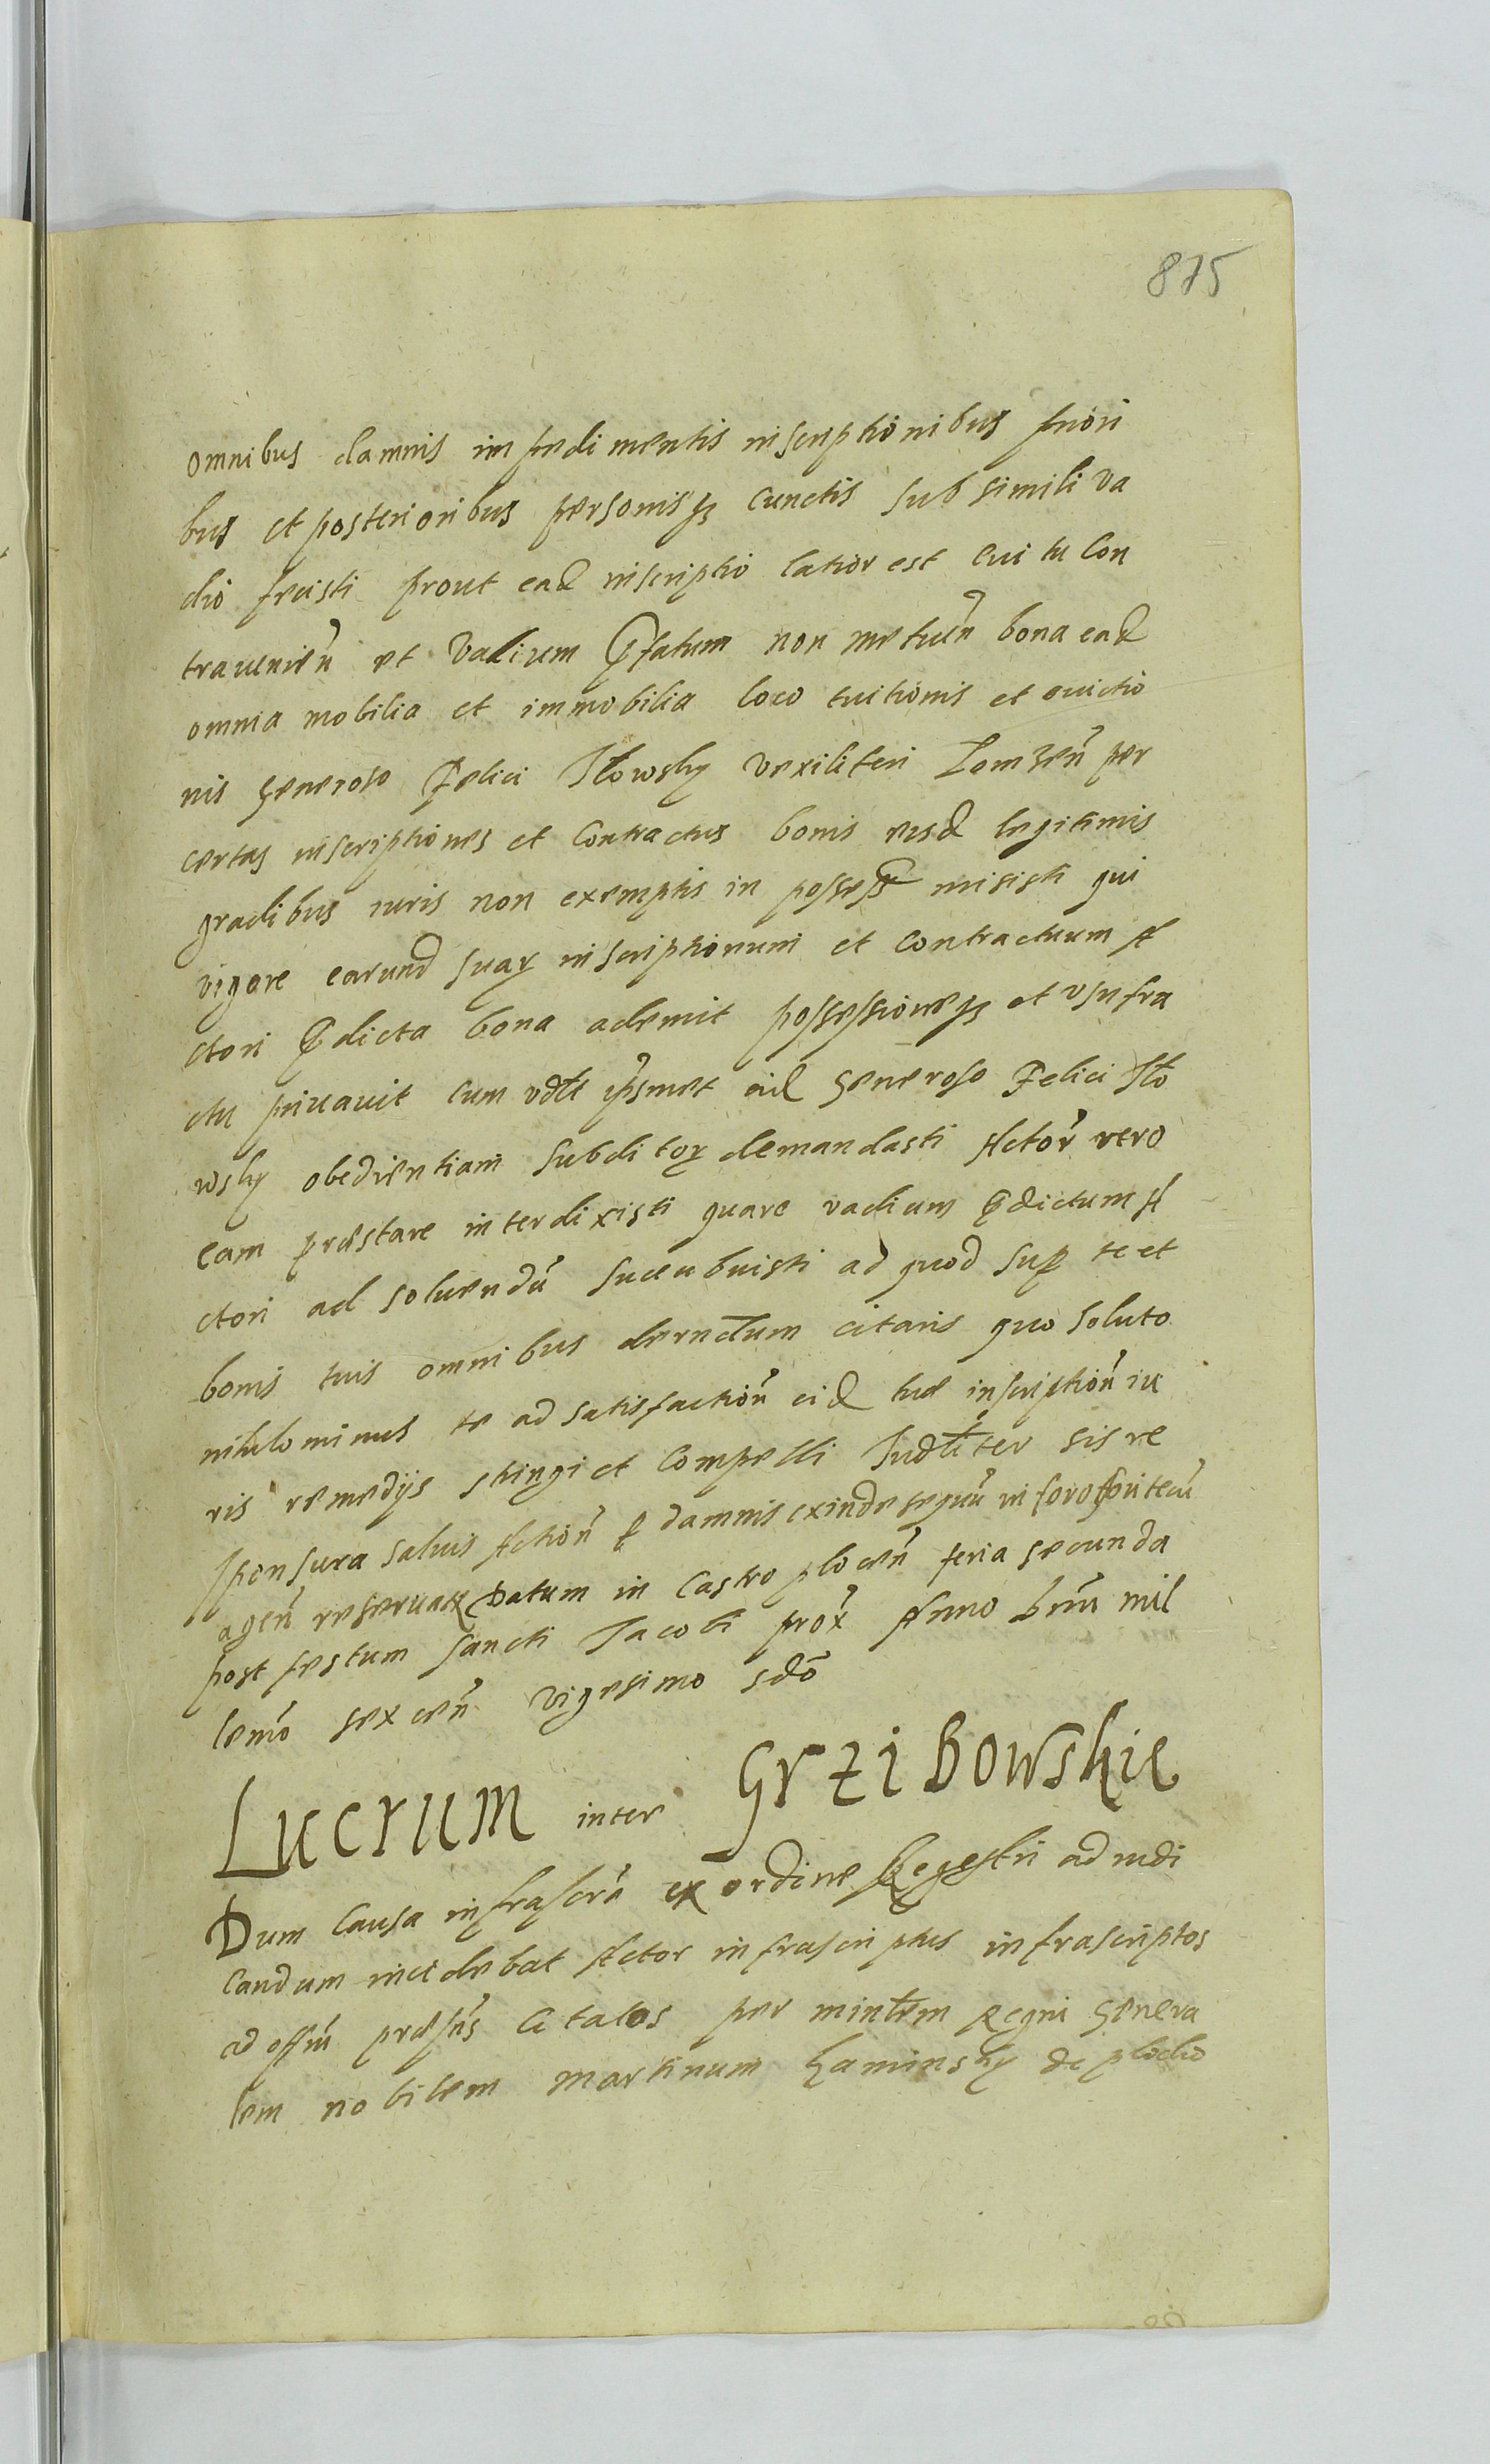 875
omnibus damnis impedimentis inscriptionibus priori
bus et posterioribus personisq₃ cunctis sub simili va
dio fecisti prout ead inscriptio latior est cui tu con
traunien̄ et Vadium p̄fatum non metuen̄ bona ead
omnia mobilia et immobilia loco tuitionis et euictio
nis generoso Felici Iłowsky vexiliferi Lomzen̄ per
certas inscriptiones et contractus bonis eisd legitimis
gradibus iuris non exemptis in possess misisti qui
vigore earund suaꝝ inscriptionum et contractuum A
ctori p̄dicta bona ademit possessioneq₃ et vsufru
ctu priuauit cum vdlt ipsmet eid generoso Felici Iło
wsky obedientiam subditoꝝ demandasti Actor̄ vero
eam præstare interdixisti quare vadium p̄dictum A
ctori ad soluendū succubuisti ad quod sup te et
bonis tuis omnibus decrndum citaris quo soluto
nihilominus te ad satisfaction̄ eid tuæ inscription̄ iu
ris remedijs stringi et compelli Iudlter sis re
sponsura saluis Action̄ p damnis exinde sequū in foro fori tecū
agen̄ reseruatꝭ Datum in Castro plocen̄ feria secunda
post festum sancti Jacobi prox̄ Anno Dnū mil
lemō sexcen̄ vigesimo sdō
Lucrum inter Grzibowskie
Dum Causa infrascrā ex ordine Regestri ad iudi
candum incidebat Actor infrascriptus infrascriptos
ad offm̄ præsn̄s citatos per mintrem Regni Genera
lem nobilem Martinum Kaminsky de plocko